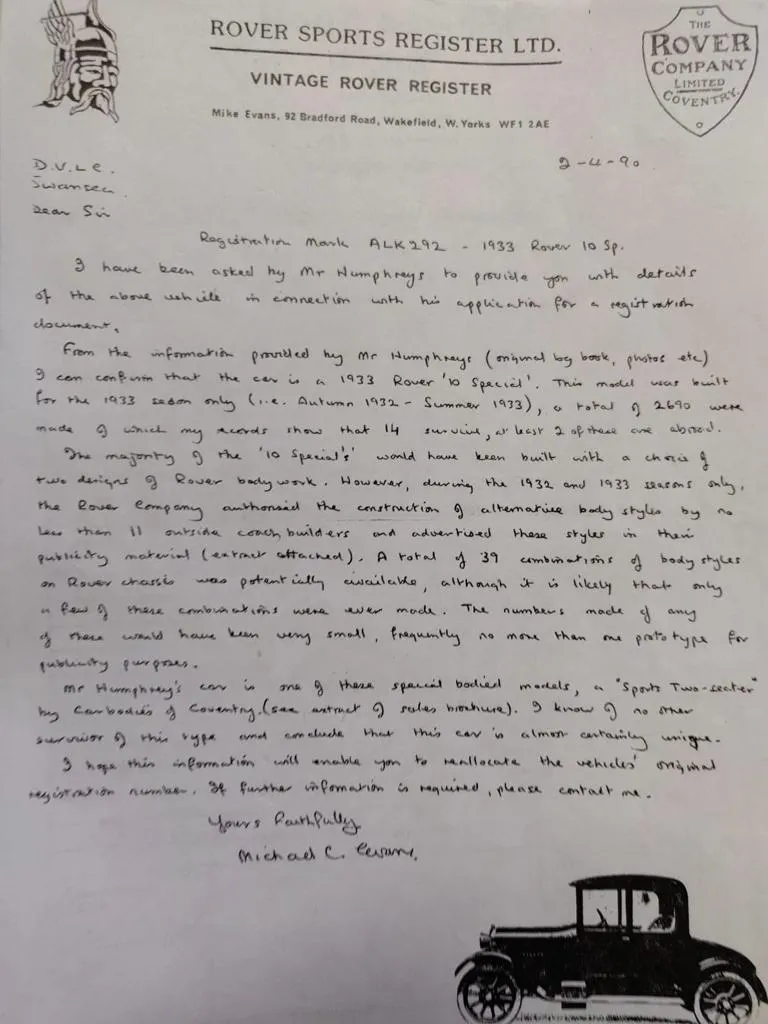 ROVER SPORTS REGISTER LTD.
VINTAGE ROVER REGISTER
Mike Evans, 92 Bradford Road, Wakefield, W. Yorks WF1 2AE
THE
ROVER
COMPANY
LIMITED
COVENTRY.
2-4-90
D.V.L.C.
Swansea.
Dear Sir
Registration Mark ALK292 - 1933 Rover 10 Sp.
I have been asked by Mr Humphreys to provide you with details
of the above vehicle in connection with his application for a registration
document.
From the information provided by Mr Humphreys (original log book, photos etc)
I can confirm that the car is a 1933 Rover '10 Special'. This model was built
for the 1933 season only (i.e. Autumn 1932 - Summer 1933), a total of 2690 were
made of which my records show that 14 survive, at least 2 of these are abroad.
The majority of the '10 Special's' would have been built with a choice of
two designs of Rover bodywork. However, during the 1932 and 1933 seasons only,
the Rover Company authorised the construction of alternative body styles by no
less than 11 outside coachbuilders and advertised these styles in their
publicity material (extract attached). A total of 39 combinations of body styles
on Rover chassis was potentially available, although it is likely that only
a few of these combinations were ever made. The numbers made of any
of these would have been very small, frequently no more than one prototype for
publicity purposes.
Mr Humphrey's car is one of these special bodied models, a "Sports Two-seater"
by Carbodies of Coventry. (see extract of sales brochure). I know of no other
survivor of this type and conclude that this car is almost certainly unique.
I hope this information will enable you to reallocate the vehicles' original
registration number. If further information is required, please contact me.
Yours Faithfully
Michael C. Evans.